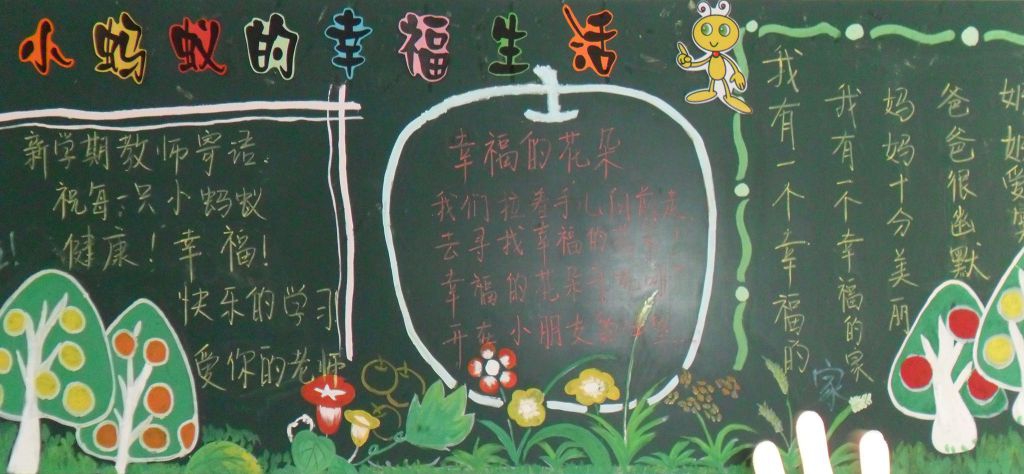 小蚂蚁的幸福生活
新学期教师寄语:
祝每一只小蚂蚁
健康！幸福！
快乐的学习
爱你的老师
幸福的花朵
我们拉着手儿向前走
去寻找幸福的
幸福的花朵
开在小朋友
我有一个幸福的
家
我有一个幸福的
妈妈十分美丽
爸爸很幽默